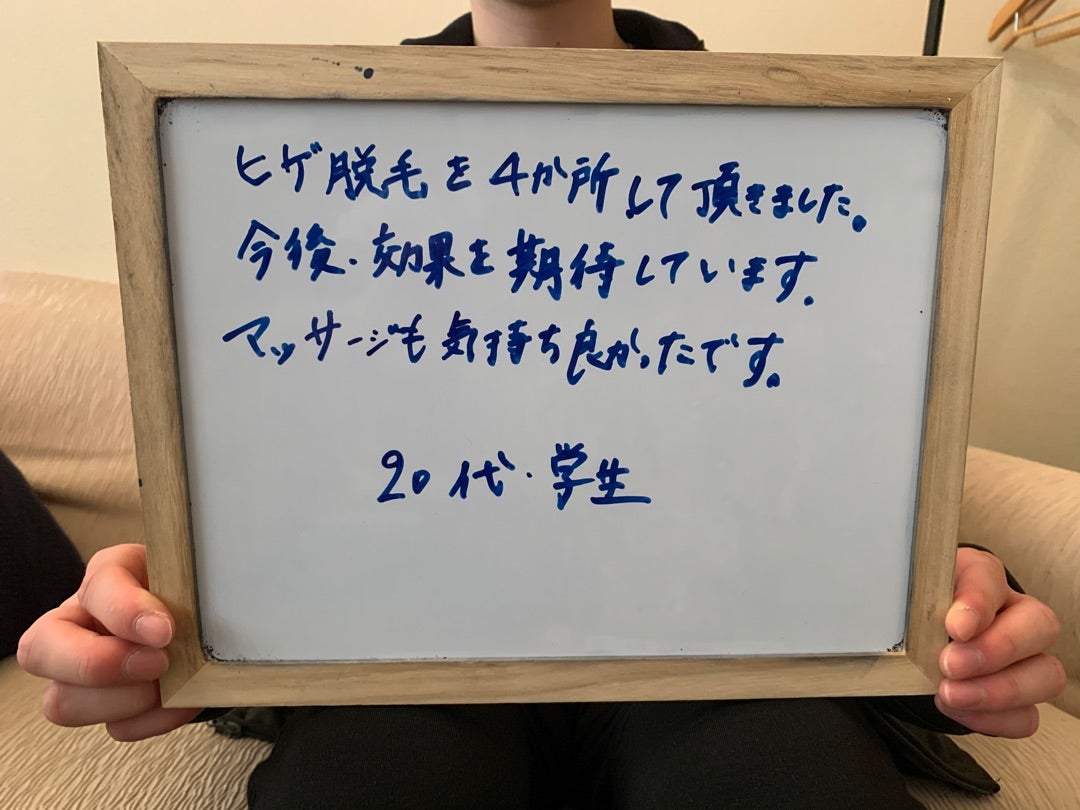 ヒゲ脱毛を4か所して頂きました。
今後、効果を期待しています。
マッサージも気持ち良かったです。
20代・学生